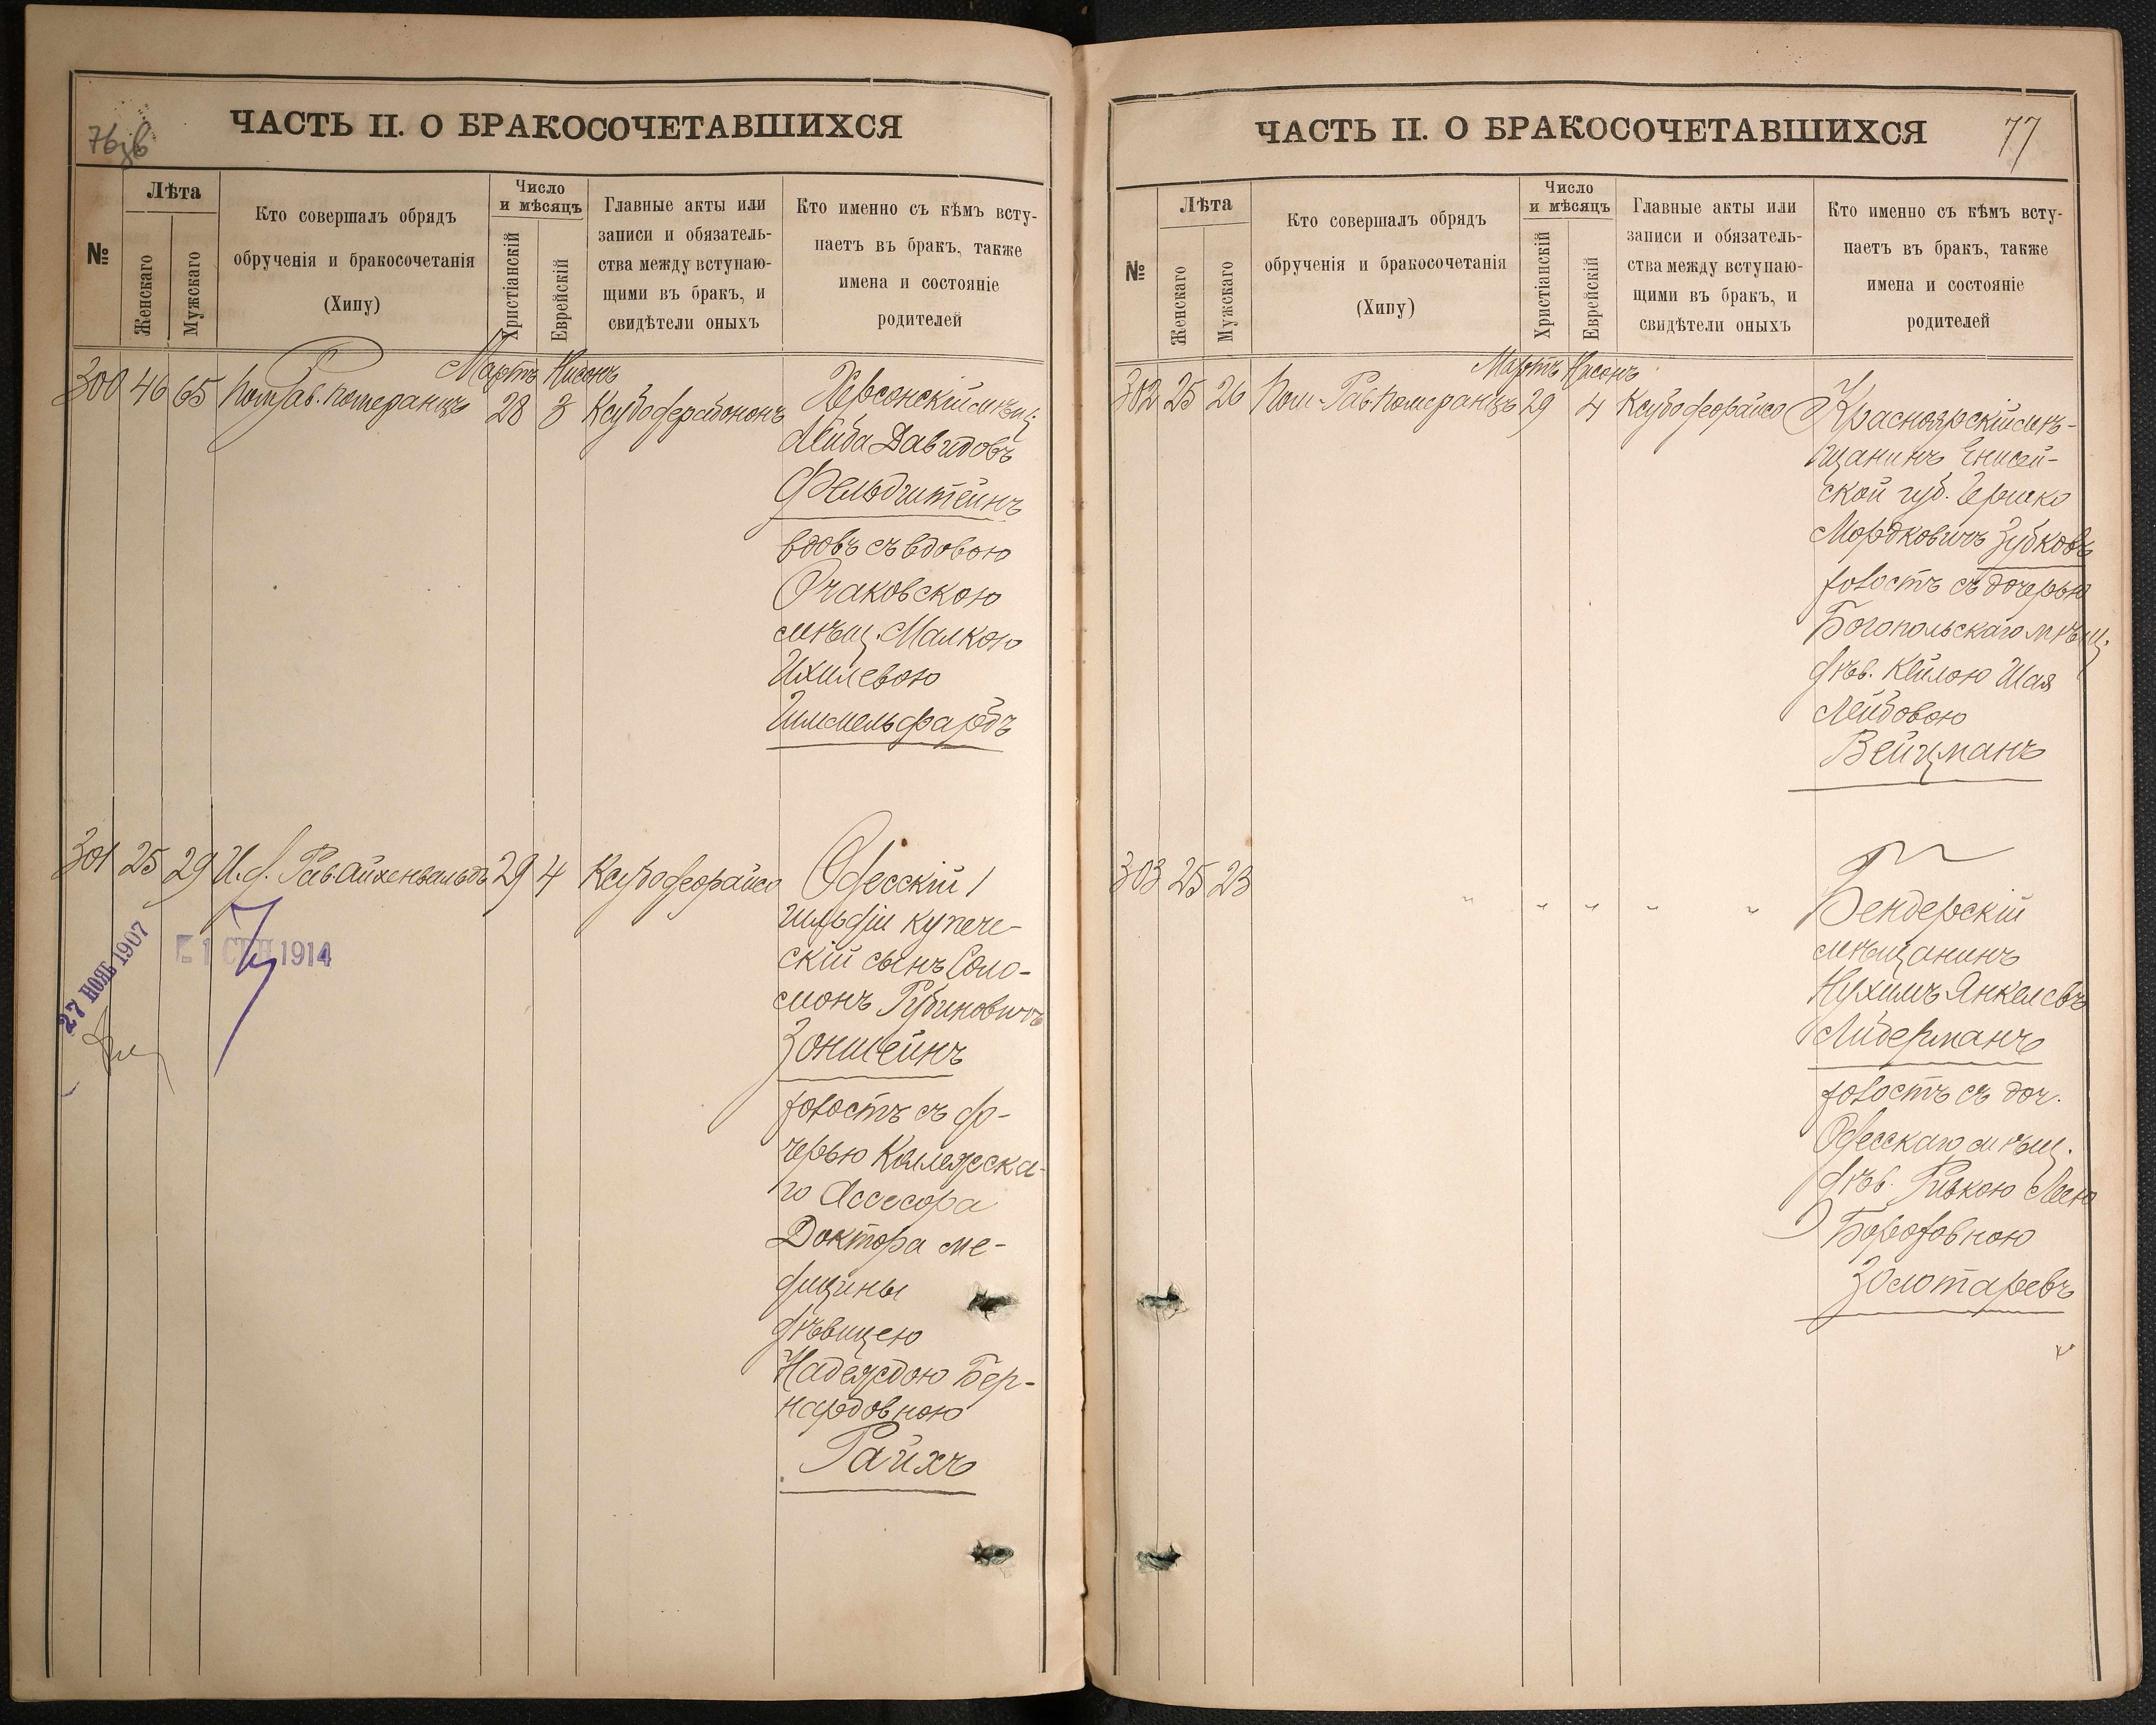 76зв
ЧАСТЬ II. О БРАКОСОЧЕТАВШИХСЯ
№
Лѣта
Женскаго
Мужскаго
Кто совершалъ обрядъ
обрученія и бракосочетанія
(Хипу)
Число
и мѣсяцъ
Христіанскій
Еврейскій
Главные акты или
записи и обязатель-
ства между вступаю-
щими въ бракъ, и
свидѣтели оныхъ
Кто именно съ кѣмъ всту-
паетъ въ бракъ, также
имена и состояніе
родителей
Мартъ Нисонъ
300 46 65 Пом. Рав. Померанцъ 28 3
Херсонскій мѣщ.
Лейба Давидовъ
Фельдштейнъ
вдовъ съ вдовою
Очаковскою
мѣщ. Малкою
Ихилевою
Шимельфарбъ
301 25 29 И. д. Рав. Айхенвальдъ 29 4 Ксубо деорайсо
Одесскій 1
гильдіи купече-
скій сынъ Соло-
монъ Рубиновичъ
Зонштейнъ
холостъ съ до-
черью Коллежска-
го Ассесора
Доктора ме-
дицины
дѣвицею
Надеждою Бер-
нардовною
Райхъ
27 НОЯБ 1907
1 СЕН 1914
ЧАСТЬ II. О БРАКОСОЧЕТАВШИХСЯ
77
№
Лѣта
Женскаго
Мужскаго
Кто совершалъ обрядъ
обрученія и бракосочетанія
(Хипу)
Число
и мѣсяцъ
Христіанскій
Еврейскій
Главные акты или
записи и обязатель-
ства между вступаю-
щими въ бракъ, и
свидѣтели оныхъ
Кто именно съ кѣмъ всту-
паетъ въ бракъ, также
имена и состояніе
родителей
Мартъ Нисонъ
302 25 26 Пом. Рав. Померанцъ 29 4 Ксубо деорайсо
Красноярскій мѣ-
щанинъ Енисей-
ской губ. Гершко
Мордковичъ Зубковъ
холостъ съ дочерью
Богопольскаго мѣщ.
дѣв. Кейлою Шая
Лейбовою
Вейцманъ
303 25 23 " " " " "
Бендерскій
мѣщанинъ
Нухимъ Янкелевъ
Либерманъ
холостъ съ доч.
Одесскаго мѣщ.
дѣв. Ривкою Леею
Бороховною
Золотаревъ